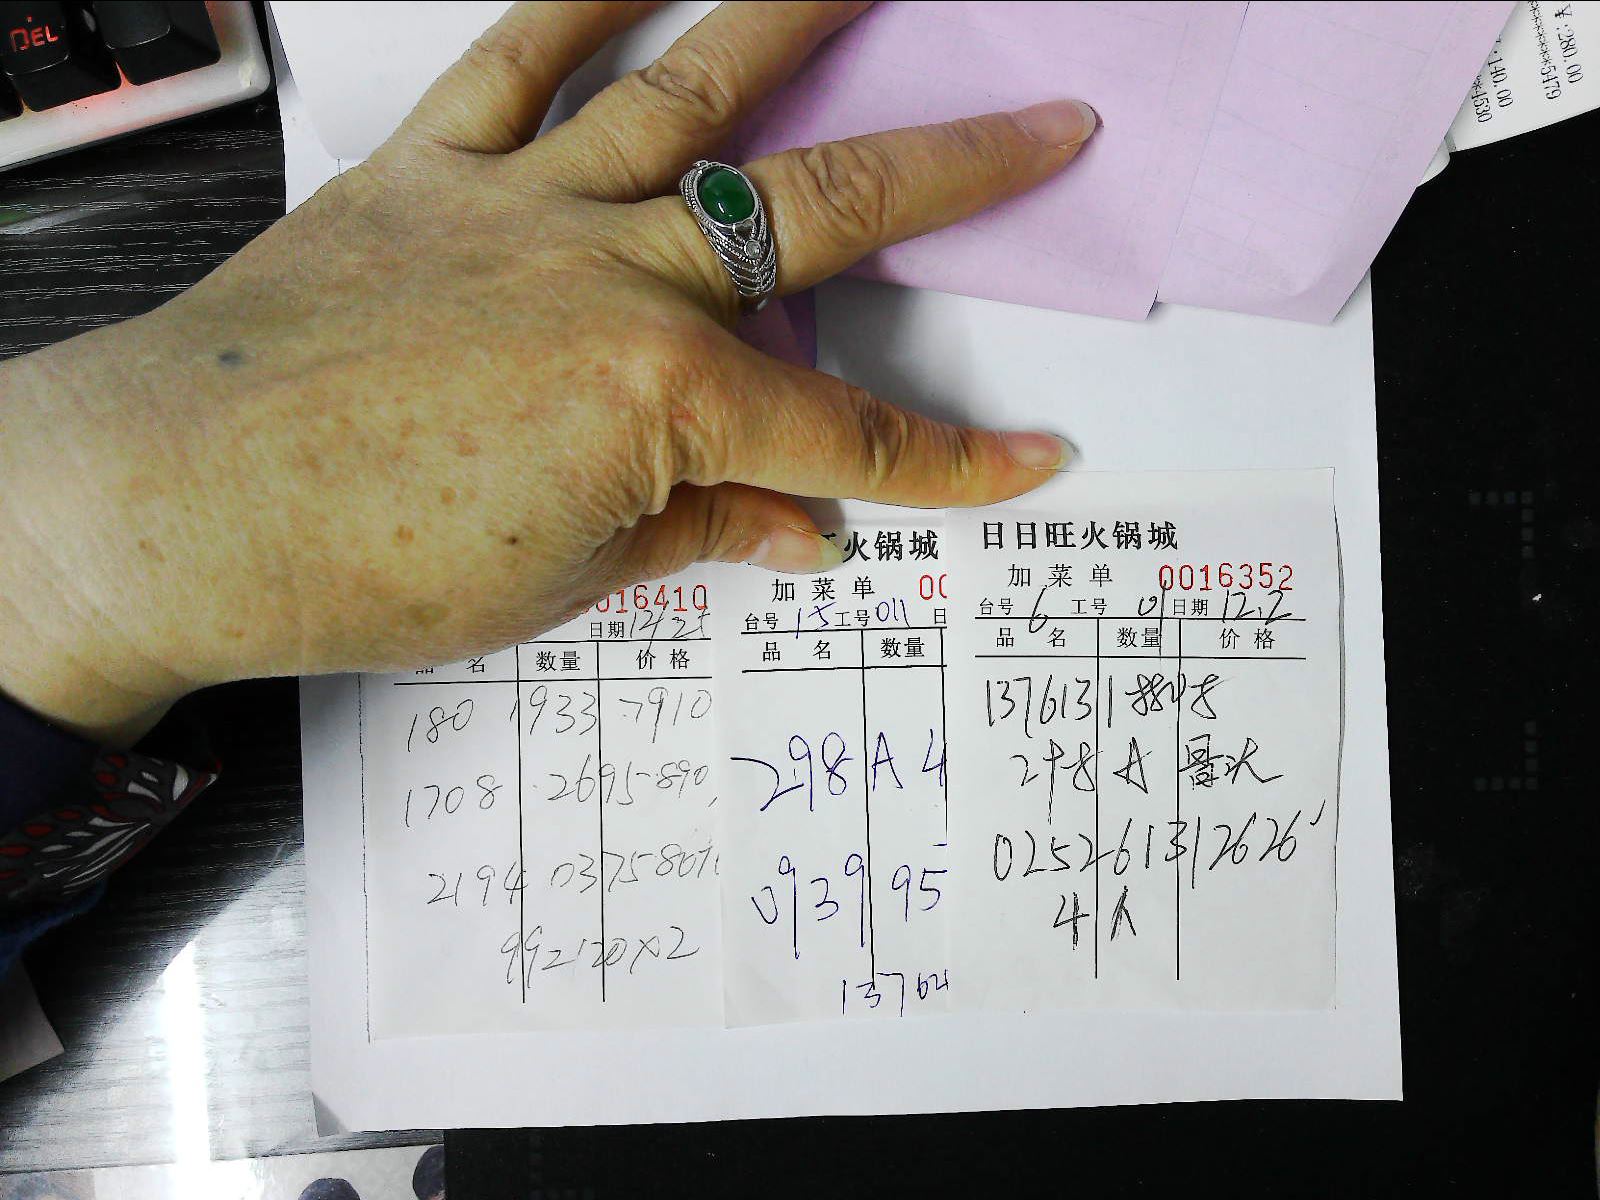 DEL
00.082:
6L45*************
00.041:
0ES4**
016410
日期 12/25
品 名 数量 价 格
180 1933 7910
1708 2695.890
2194 0375
992120×2
火锅城
加菜单 00
台号 15 工号 011 日
品 名 数量
298 A 4
0939 95
13764
日日旺火锅城
加菜单 0016352
台号 6 工号 01 日期 12.2
品 名 数量 价 格
137613188
025261312626
4人